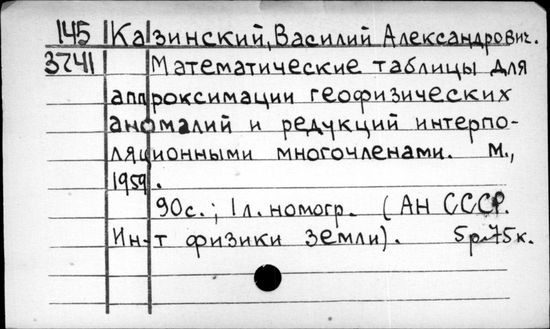 145 Казинский, Василий Александрович.
3741 Математические таблицы для
аппроксимации геофизических
аномалий и редукций интерпо-
ляционными многочленами. М.,
1959.
90с.; 1л. номогр. (АН СССР.
Ин-т физики земли). 5р.75к.